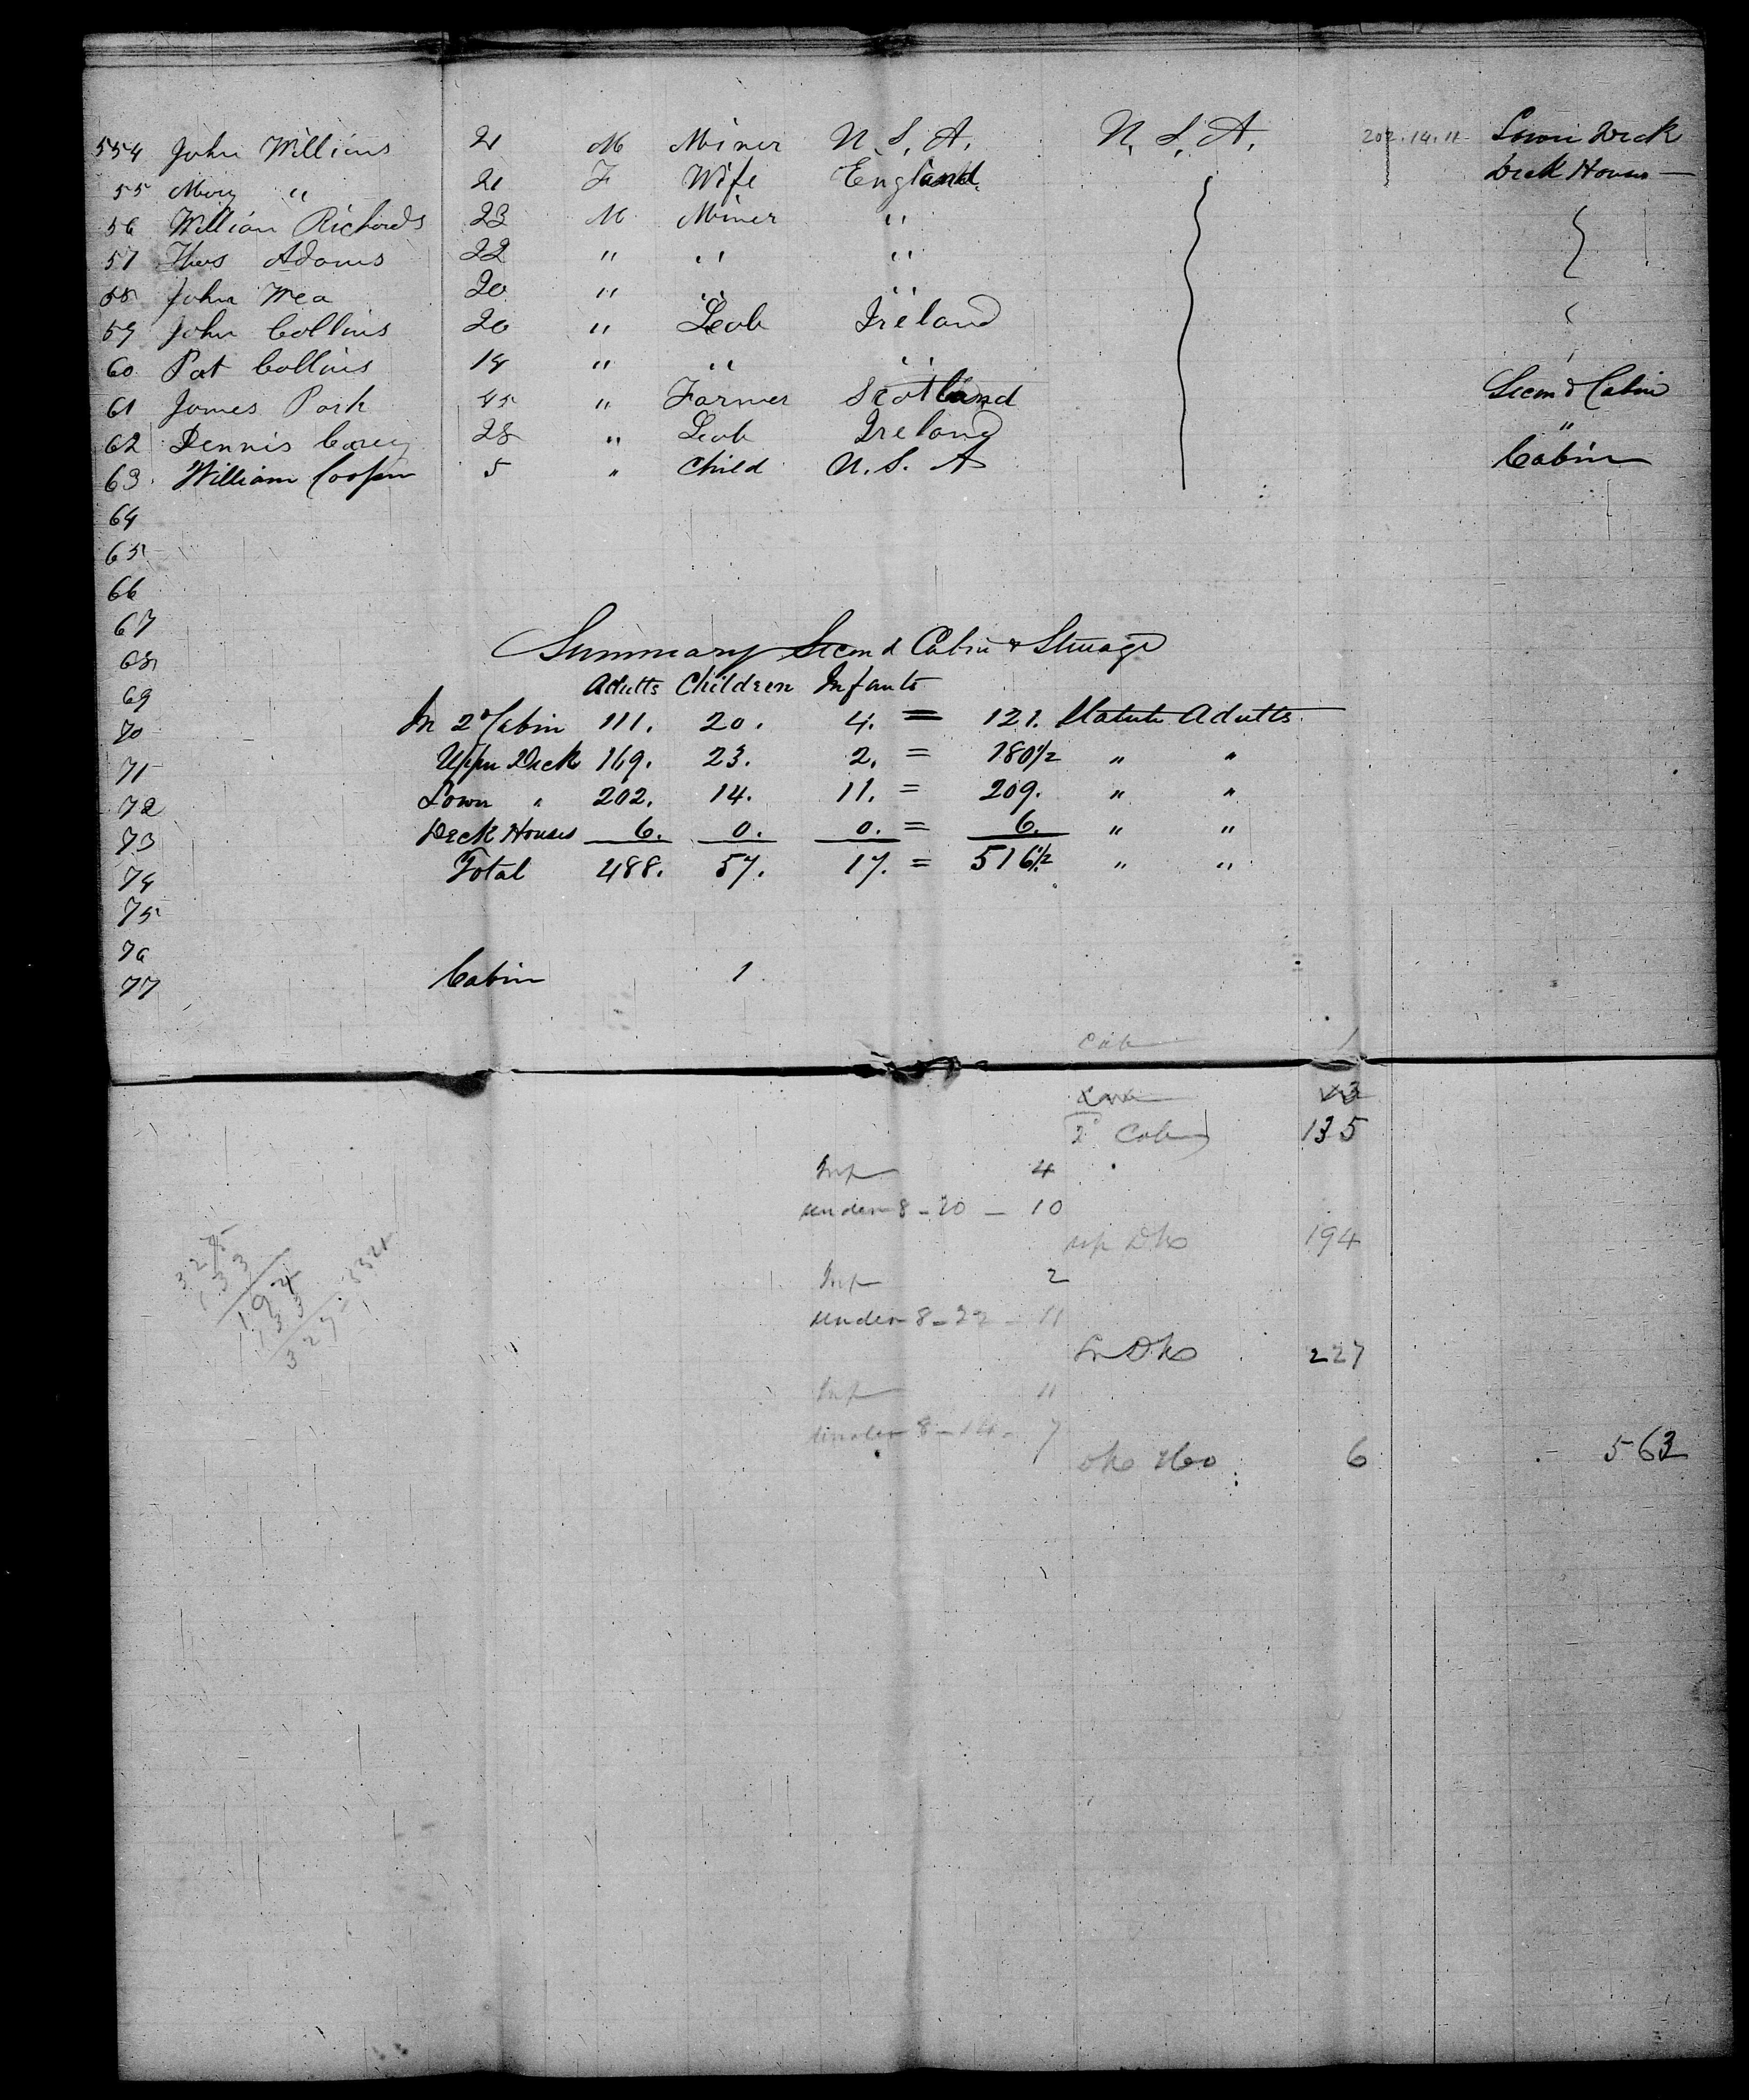 554 John Williams 21 M Miner U.S.A. U.S.A. 202.14.11 Lower Deck
55 Mary " 21 F Wife England Deck Houses
56 William Richards 23 M Miner "
57 Thos Adams 22 " " "
58 John Wea 20 " " "
59 John Collins 20 " Lab Ireland
60 Pat Collins 19 " " "
61 James Park 45 " Farmer Scotland Second Cabin
62 Dennis Carey 28 " Lab Ireland "
63 William Cooper 5 " Child U.S.A Cabin
64
65
66
67
68 Summary Second Cabin & Steerage
69 Adults Children Infants
70 In 2d Cabin 111. 20. 4. = 121. Statute Adults
71 Upper Deck 169. 23. 2. = 180 1/2 " "
72 Lower " 202. 14. 11. = 209. " "
73 Deck Houses 6. 0. 0. = 6. " "
74 Total 488. 57. 17. = 516 1/2 " "
75
76
77 Cabin 1
Cab 1
2d Cabin 135
Inf 4
under 8 - 20 - 10
up Dks 194
Inf 2
under 8 - 22 - 11
Lr Dks 227
Inf 11
under 8 - 14 - 7
Dks Hso 6 563
328
133
194
133
327